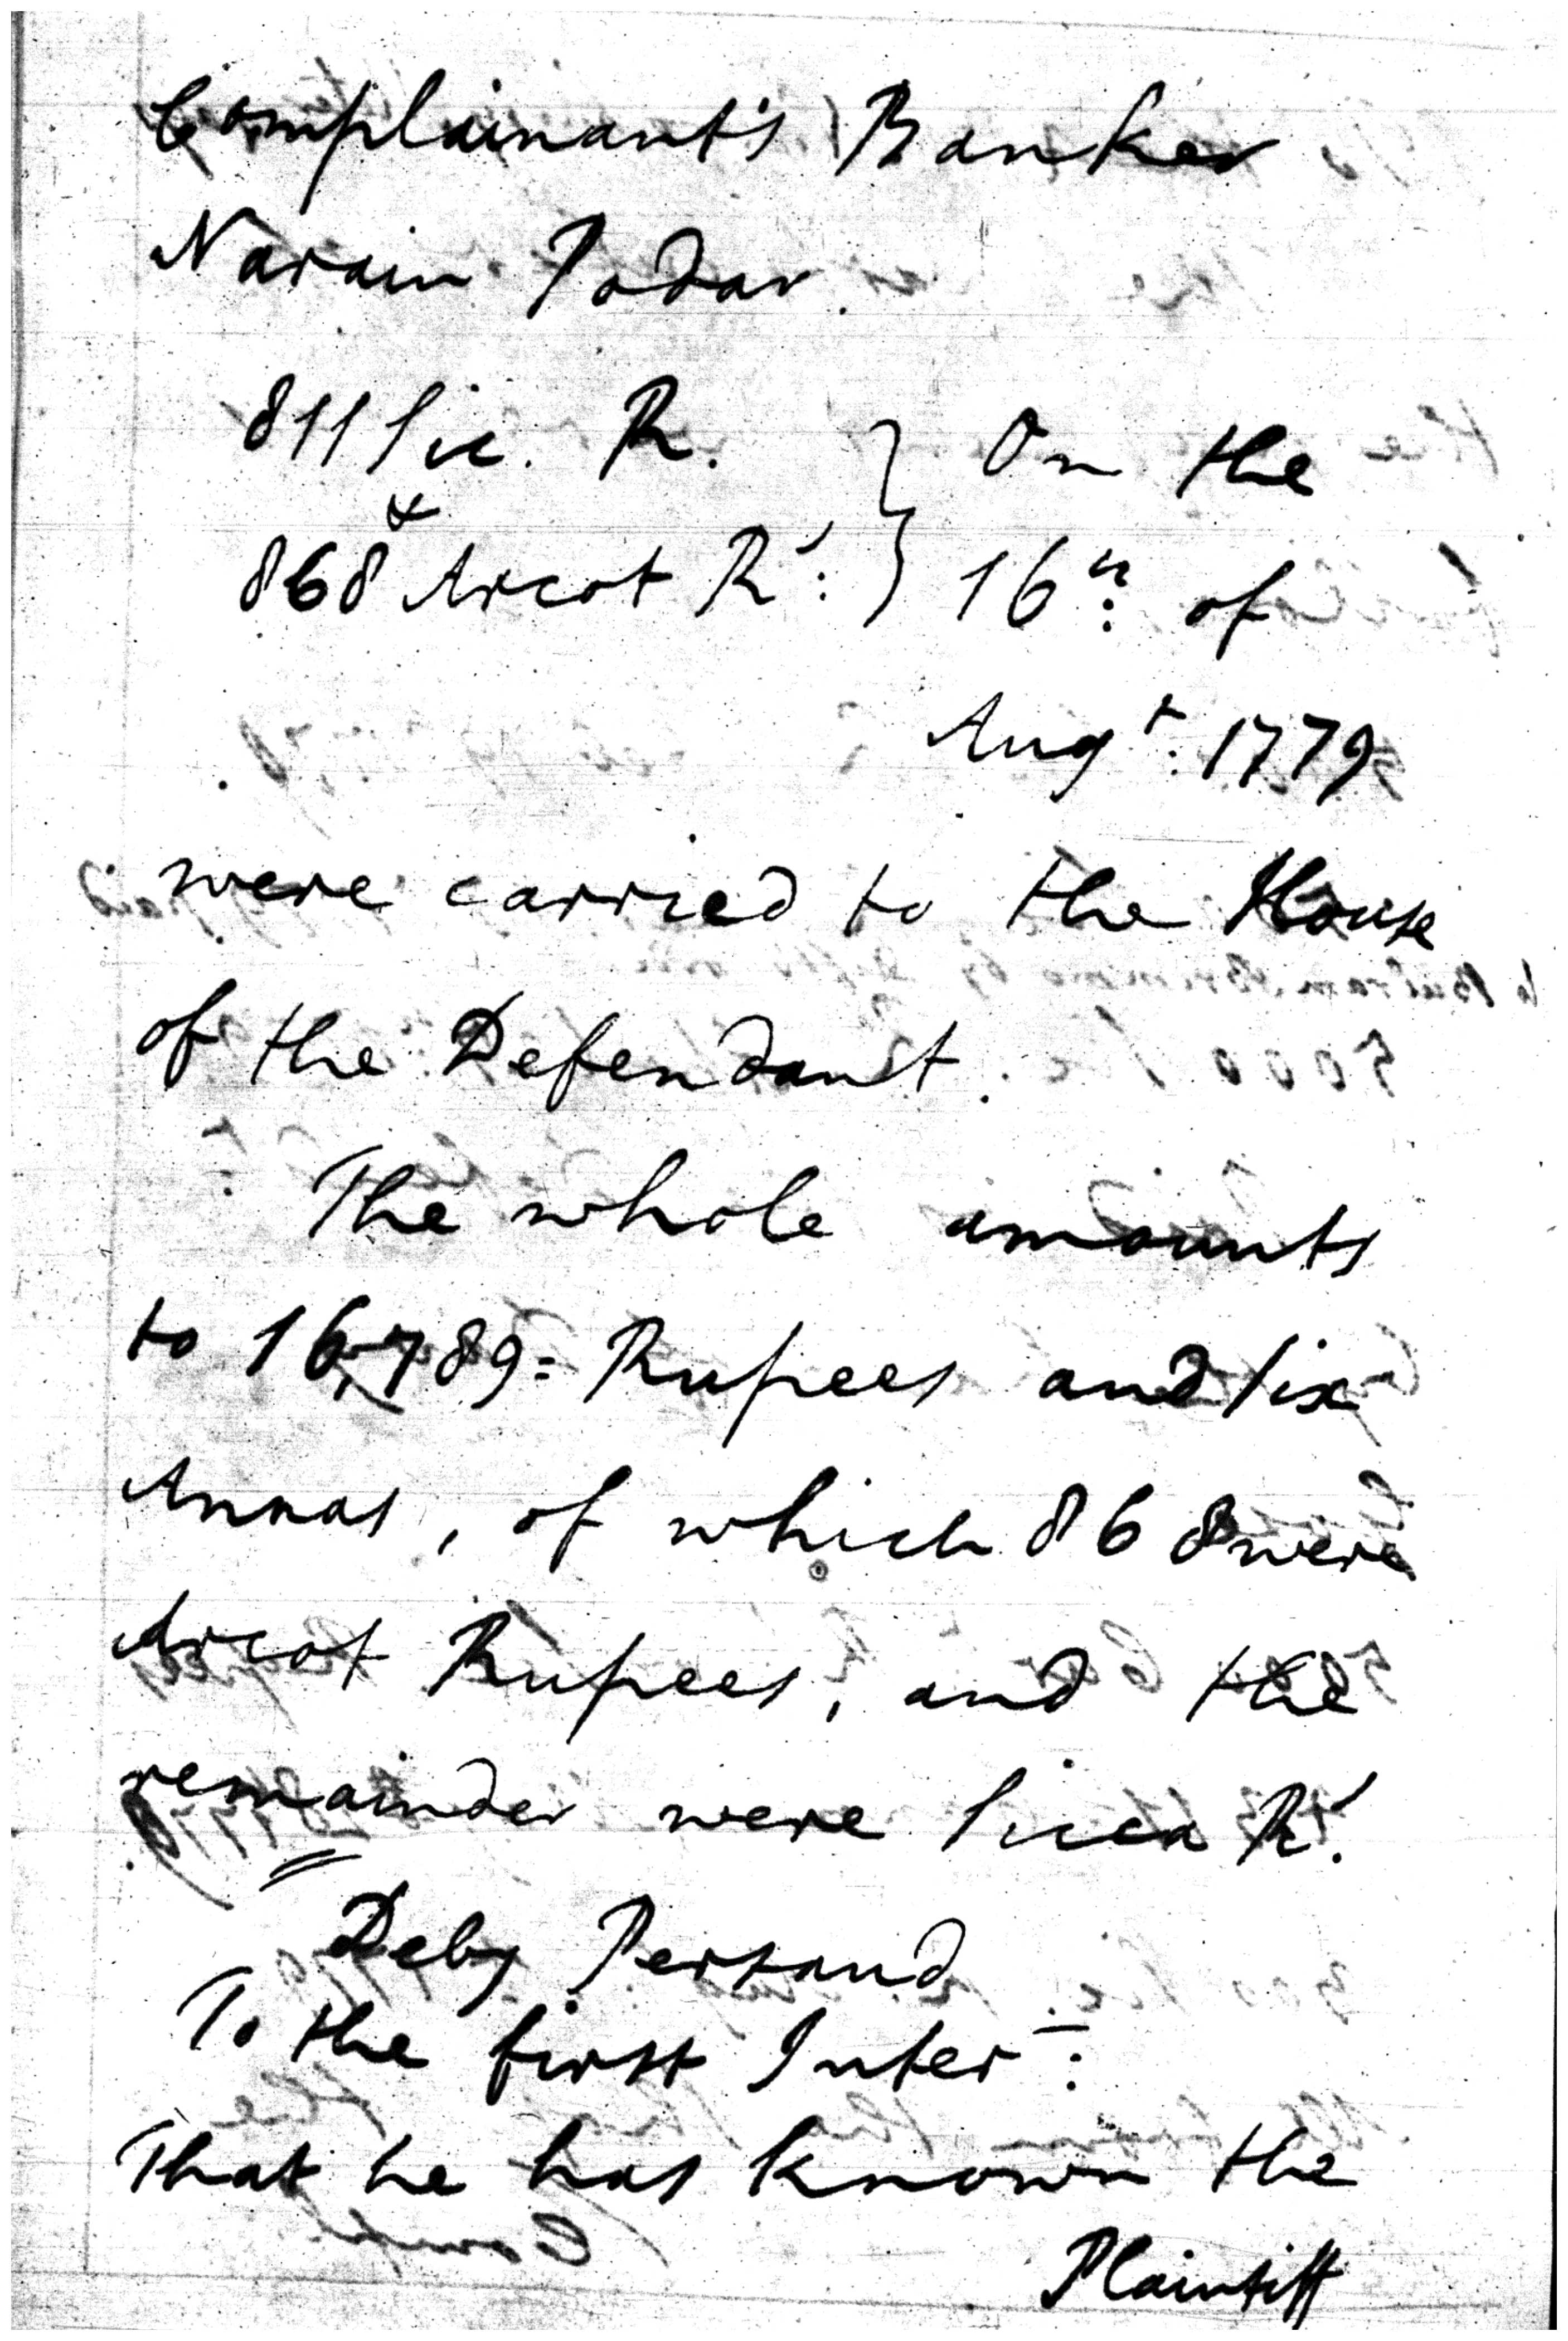 Complainant's Banker
Narain Podar.
811 Sic. R. } On the
&
868 Arcot Rs: } 16th: of
Augt: 1779
were carried to the House
of the Defendant.
The whole amounts
to 16,789= Rupees and six
Annas, of which 868 were
Arcot Rupees, and the
remainder were Sicca Rs.
Deby Persaud
To the first Inter:
That he has known the
Plaintiff